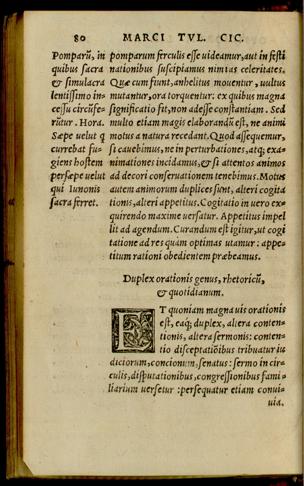 80 MARCI TVL. CIC.
Pomparũ, in
quibus sacra
& simulacra
lentissimo in-
cessu circũfe-
rũtur. Hora.
Sæpe uelut q
currebat fu-
giens hostem
persæpe uelut
qui Iunonis
sacra ferret.
pomparum ferculis esse uideamur, aut in festi
nationibus suscipiamus nimias celeritates.
Quæ cum fiunt, anhelitus mouentur, uultus
mutantur, ora torquentur: ex quibus magna
significatio fit, non adesse constantiam. Sed
multo etiam magis elaborandũ est, ne animi
motus a natura recedant. Quod assequemur,
si cauebimus, ne in perturbationes, atq; exa-
nimationes incidamus, & si attentos animos
ad decori conseruationem tenebimus. Motus
autem animorum duplices sunt, alteri cogita
tionis, alteri appetitus. Cogitatio in uero ex-
quirendo maxime uersatur. Appetitus impel
lit ad agendum. Curandum est igitur, ut cogi
tatione ad res quàm optimas utamur: appe-
titum rationi obedientem præbeamus.
Duplex orationis genus, rhetoricũ,
& quotidianum.
ET quoniam magna uis orationis
est, eaq; duplex, altera conten-
tionis, altera sermonis: conten-
tio disceptatiõibus tribuatur iu
diciorum, concionum, senatus: sermo in cir-
culis, disputationibus, congressionibus fami-
liarium uersetur: persequatur etiam conui-
uia.